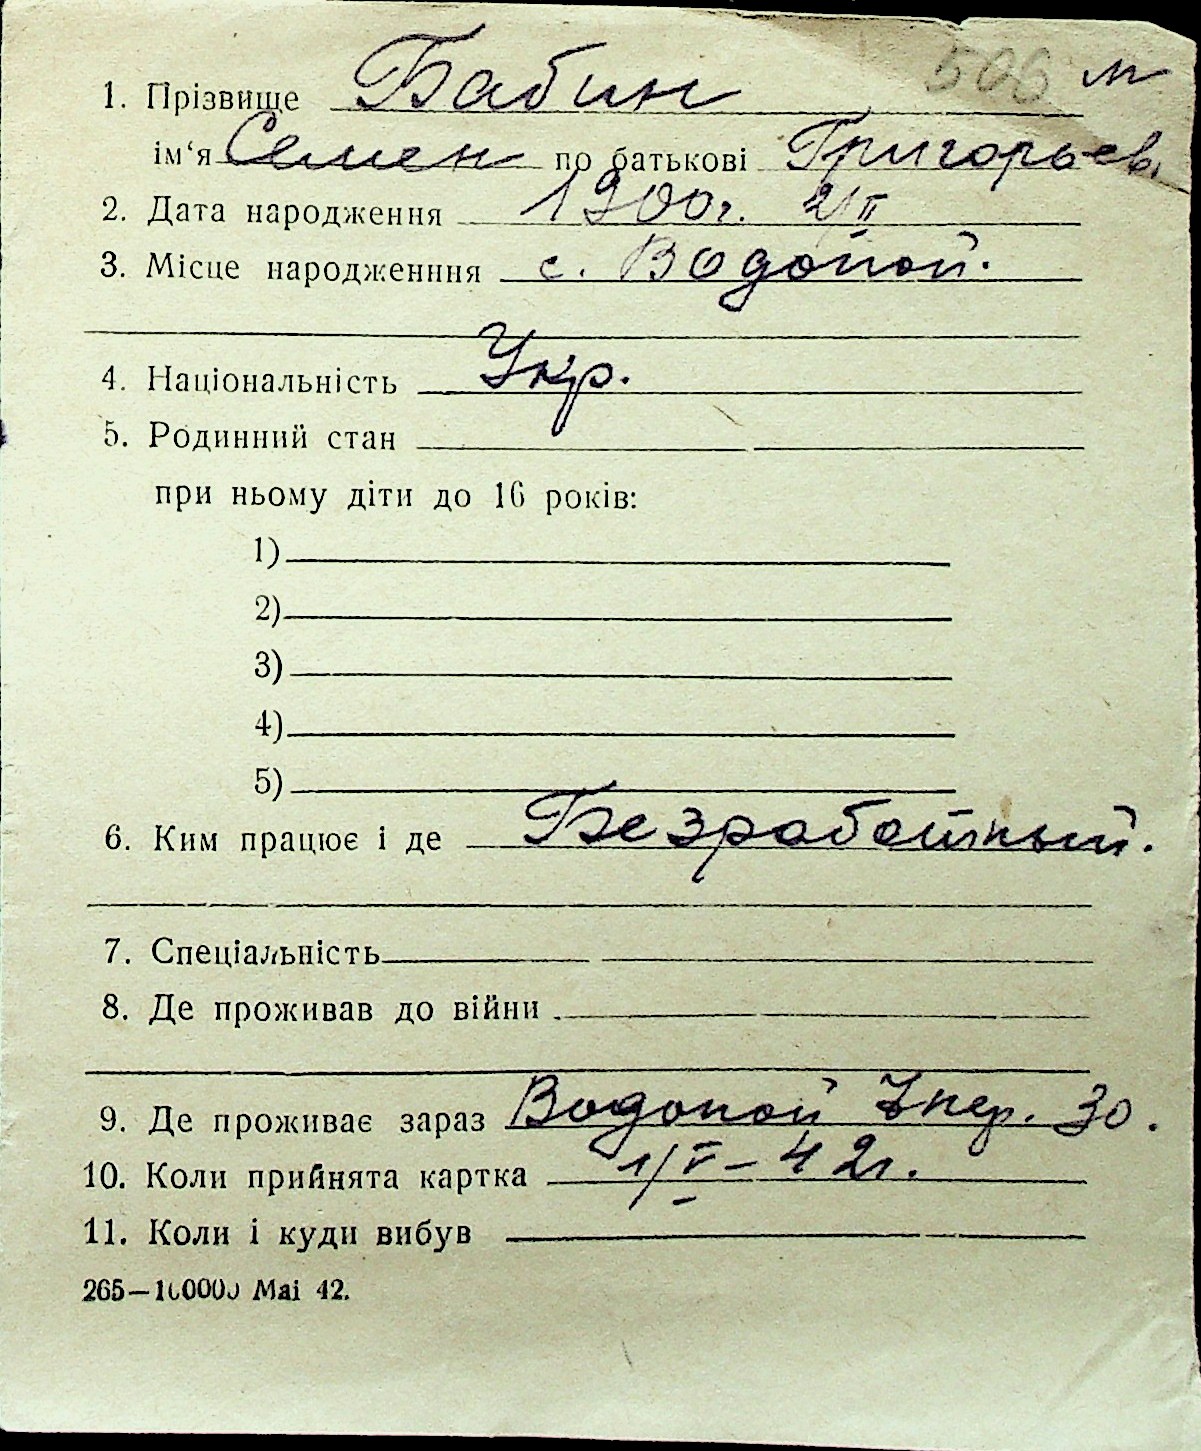 506 м
1. Прізвище Бабин
ім‘я Семен по батькові Григорьев.
2. Дата народження 1900г. 2/II
3. Місце народженння с. Водопой.
4. Національність Укр.
5. Родинний стан
при ньому діти до 16 років:
1)
2)
3)
4)
5)
6. Ким працює і де Безработный.
7. Спеціальність
8. Де проживав до війни
9. Де проживає зараз Водопой пер. 30.
10. Коли прийнята картка 1/V – 42г.
11. Коли і куди вибув
265—100000 Маі 42.